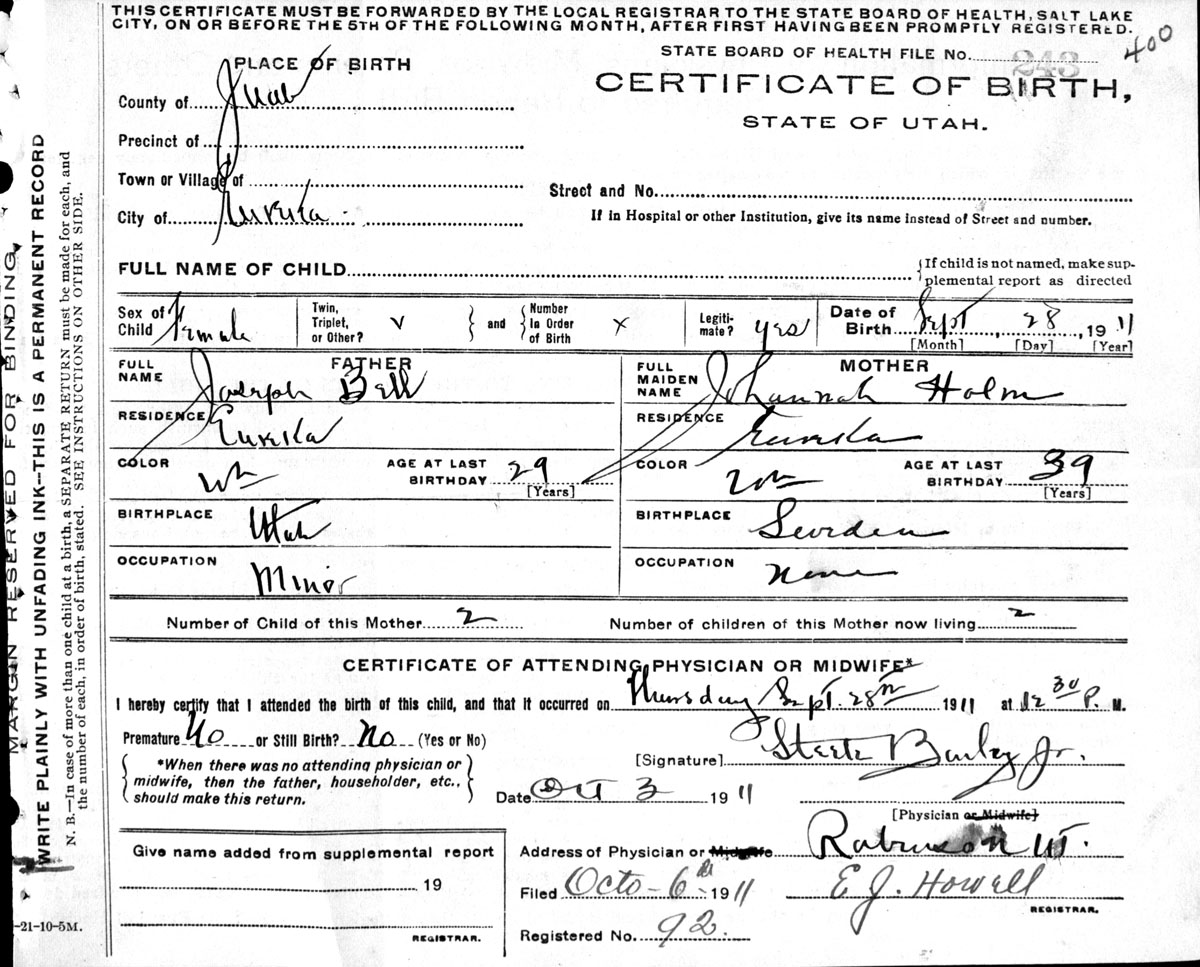 THIS CERTIFICATE MUST BE FORWARDED BY THE LOCAL REGISTRAR TO THE STATE BOARD OF HEALTH, SALT LAKE
CITY, ON OR BEFORE THE 5TH OF THE FOLLOWING MONTH, AFTER FIRST HAVING BEEN PROMPTLY REGISTERED.
400
STATE BOARD OF HEALTH FILE No. 243
PLACE OF BIRTH
CERTIFICATE OF BIRTH,
STATE OF UTAH.
County of Juab
Precinct of
Town or Village of
Street and No.
City of Eureka
If in Hospital or other Institution, give its name instead of Street and number.
FULL NAME OF CHILD
{If child is not named, make sup-
plemental report as directed
Sex of Child Female
Twin, Triplet, or Other? v
and
Number In Order of Birth x
Legiti-mate? yes
Date of Birth Sept, 28, 1911
[Month] [Day] [Year]
FATHER
FULL NAME Joseph Bell
MOTHER
FULL MAIDEN NAME Johannah Holm
RESIDENCE Eureka
RESIDENCE Eureka
COLOR Wh
AGE AT LAST BIRTHDAY 29
[Years]
COLOR Wh
AGE AT LAST BIRTHDAY 39
[Years]
BIRTHPLACE Utah
BIRTHPLACE Sweden
OCCUPATION Minor
OCCUPATION None
Number of Child of this Mother 2
Number of children of this Mother now living 2
CERTIFICATE OF ATTENDING PHYSICIAN OR MIDWIFE*
I hereby certify that I attended the birth of this child, and that it occurred on Thursday Sept. 28th 1911 at 12 30 P. M.
Premature No or Still Birth? No (Yes or No)
*When there was no attending physician or
midwife, then the father, householder, etc.,
should make this return.
[Signature] Steele Bailey Jr.
Date Oct 3 1911
[Physician or Midwife]
Address of Physician or Midwife Robinson UT.
Filed Octo-6th 1911
E J. Howell
REGISTRAR.
Registered No. 92.
Give name added from supplemental report
19
REGISTRAR.
-21-10-5M.
MARGIN RESERVED FOR BINDING
WRITE PLAINLY WITH UNFADING INK--THIS IS A PERMANENT RECORD
N. B.—In case of more than one child at a birth, a SEPARATE RETURN must be made for each, and
the number of each, in order of birth, stated. SEE INSTRUCTIONS ON OTHER SIDE.